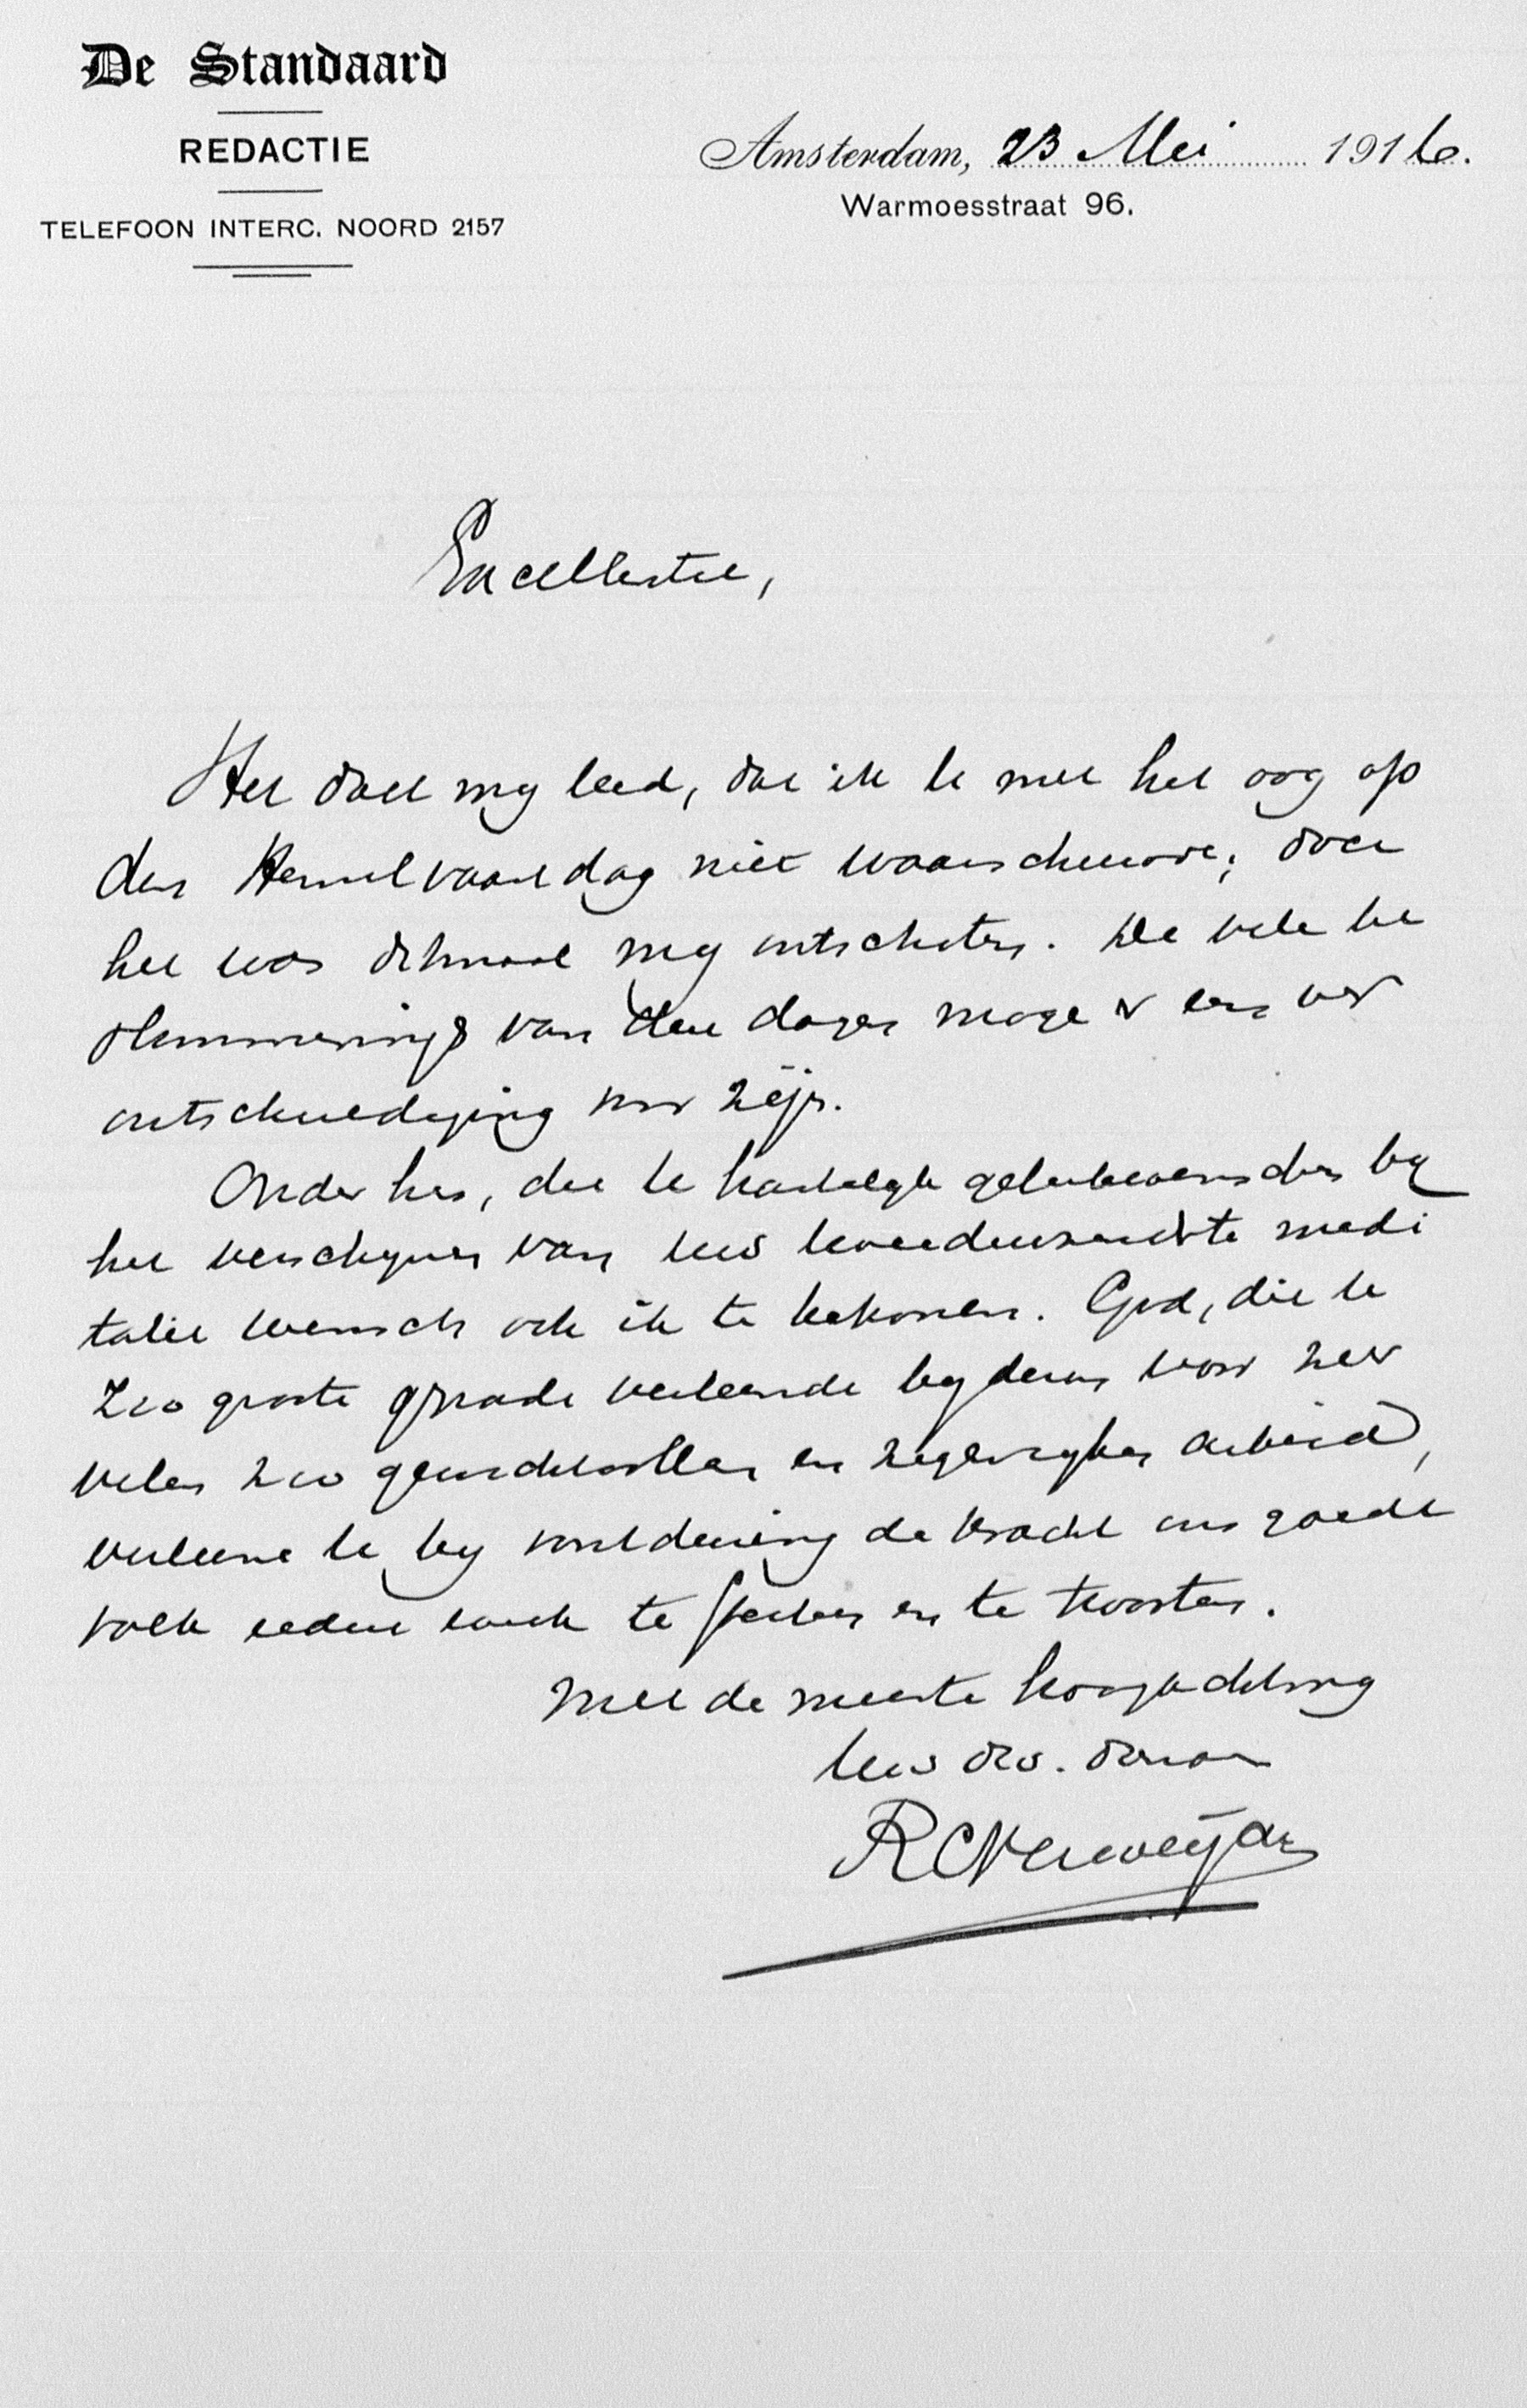 De Standaard
REDACTIE
TELEFOON INTERC. NOORD 2157
Amsterdam, 23 Mei 1916.
Warmoesstraat 96.
Excellentie,
Het doet mij leed, dat ik U met het oog op
den Hemelvaartdag niet waarschuwde; doch
het was ditmaal mij ontschoten. De vele be
slommeringen van dezen dagen moge er een ver
ontschuldiging voor zijn.
Onder hen, die U hartelijk gelukwenschen bij
het verschijnen van Uw tweeduizendste medi
tatie wensch ook ik te behooren. God, die U
zoo groote genade verleende bij dezen voor zeer
velen zoo genotvollen en zegenrijken arbeid,
verleene U bij voortduring de kracht ons goede
volk iedere week te stichten en te troosten.
Met de meeste hoogachting
Uw dw. dienaar
R C Verweijck